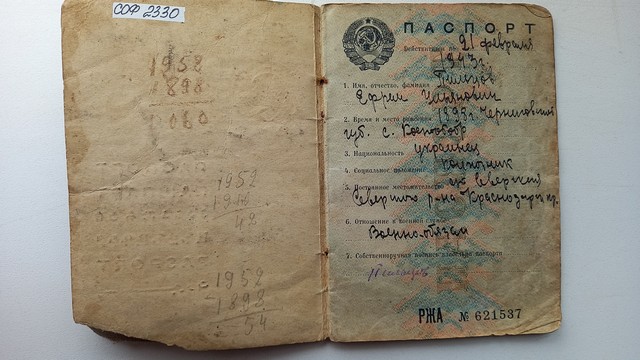 СОФ 2330
1958
1898
060
1952
49
1952
- 1898
54
ПАСПОРТ
Действителен по 21 февраля
1943г.
1. Имя, отчество, фамилия
Ефрем
2. Время и место рождения 1898г. Черниговской
губ. с.
3. Национальность украинец
4. Социальное положение
5. Постоянное местожительство Северской
Северского р-на Краснодар. кр.
6. Отношение к военной службе
Военнообязан
7. Собственноручная подпись владельца паспорта
РЖА № 621537